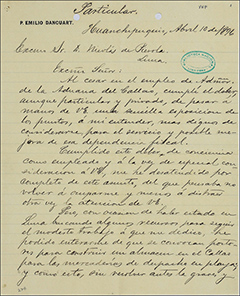 Particular.
P. EMILIO DANCUART.
Huanchipuquio, Abril 10 de 1896
Excmo Sr. D. Nicolás de Pierola
Lima.
Excmo Señor:
Al cesar en el empleo de Admor.
de la Aduana del Callao, cumplí el deber,
aunque particular y privado, de pasar á
manos de VE. una sencilla exposicion de
los puntos, á mi entender, mas dignos de
considerarse para el servicio y posible me-
jora de esa dependencia fiscal.
Cumplido este deber de conciencia
como empleado y á la vez de especial con-
sideracion á VE, me he desatendido por
completo de este asunto, del que pensaba no
volver á ocuparme y menos á distraer
otra vez la atencion de VE.
hoy, con ocasion de haber estado en
Lima buscando algunos recursos para seguir
el modesto trabajo á que me dedico, he
podido enterarme de que se
para construir un almacen en el Callao
para las mercaderias de despacho en
y como esto, sin motivo antes la